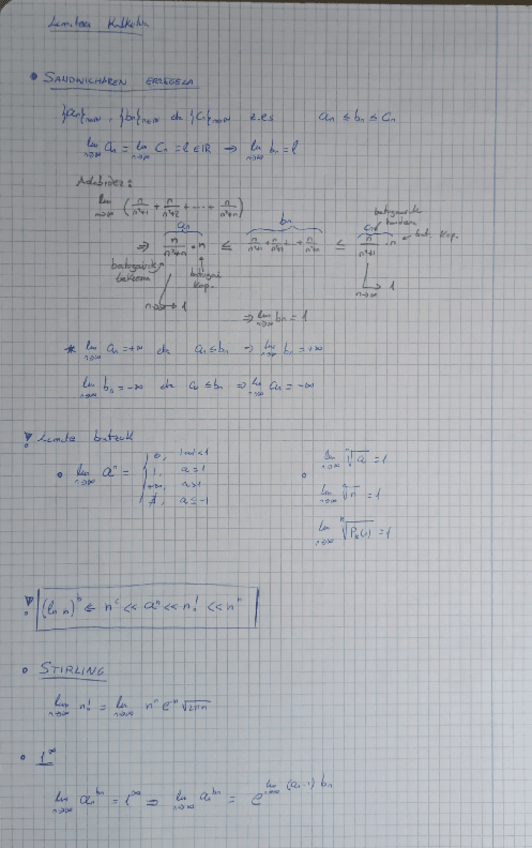 Limiteen Kalkulua
• SANDWICHAREN ERREGELA
{an}n∈ℕ, {bn}n∈ℕ da {cn}n∈ℕ z.e.s an ≤ bn ≤ cn
lim n→∞ an = lim n→∞ cn = l ∈ ℝ ⇒ lim n→∞ bn = l
Adibidez:
lim n→∞ (n/(n²+1) + n/(n²+2) + ... + n/(n²+n))
⇒ an n/(n²+n) · n ≤ bn n/(n²+1) + n/(n²+2) + ... + n/(n²+n) ≤ cn n/(n²+1) · n
batugairik txikiena batugai kop. batugairik handiena bat. kop.
n→∞ → 1 n→∞ → 1
⇒ lim n→∞ bn = 1
* lim n→∞ an = +∞ da an ≤ bn ⇒ lim n→∞ bn = +∞
lim n→∞ bn = -∞ da an ≤ bn ⇒ lim n→∞ an = -∞
! Limite batzuk
∘ lim n→∞ aⁿ = { 0, |a|<1
1, a=1
+∞, a>1
∄, a≤-1
∘ lim n→∞ ⁿ√a = 1
lim n→∞ ⁿ√n = 1
lim n→∞ ⁿ√Pk(n) = 1
! (ln n)ᵇ << nᶜ << aⁿ << n! << nⁿ
∘ STIRLING
lim n→∞ n! = lim n→∞ nⁿ e⁻ⁿ √2πn
∘ 1^∞
lim n→∞ an^bn = 1^∞ ⇒ lim n→∞ an^bn = e^(lim n→∞ (an-1) bn)